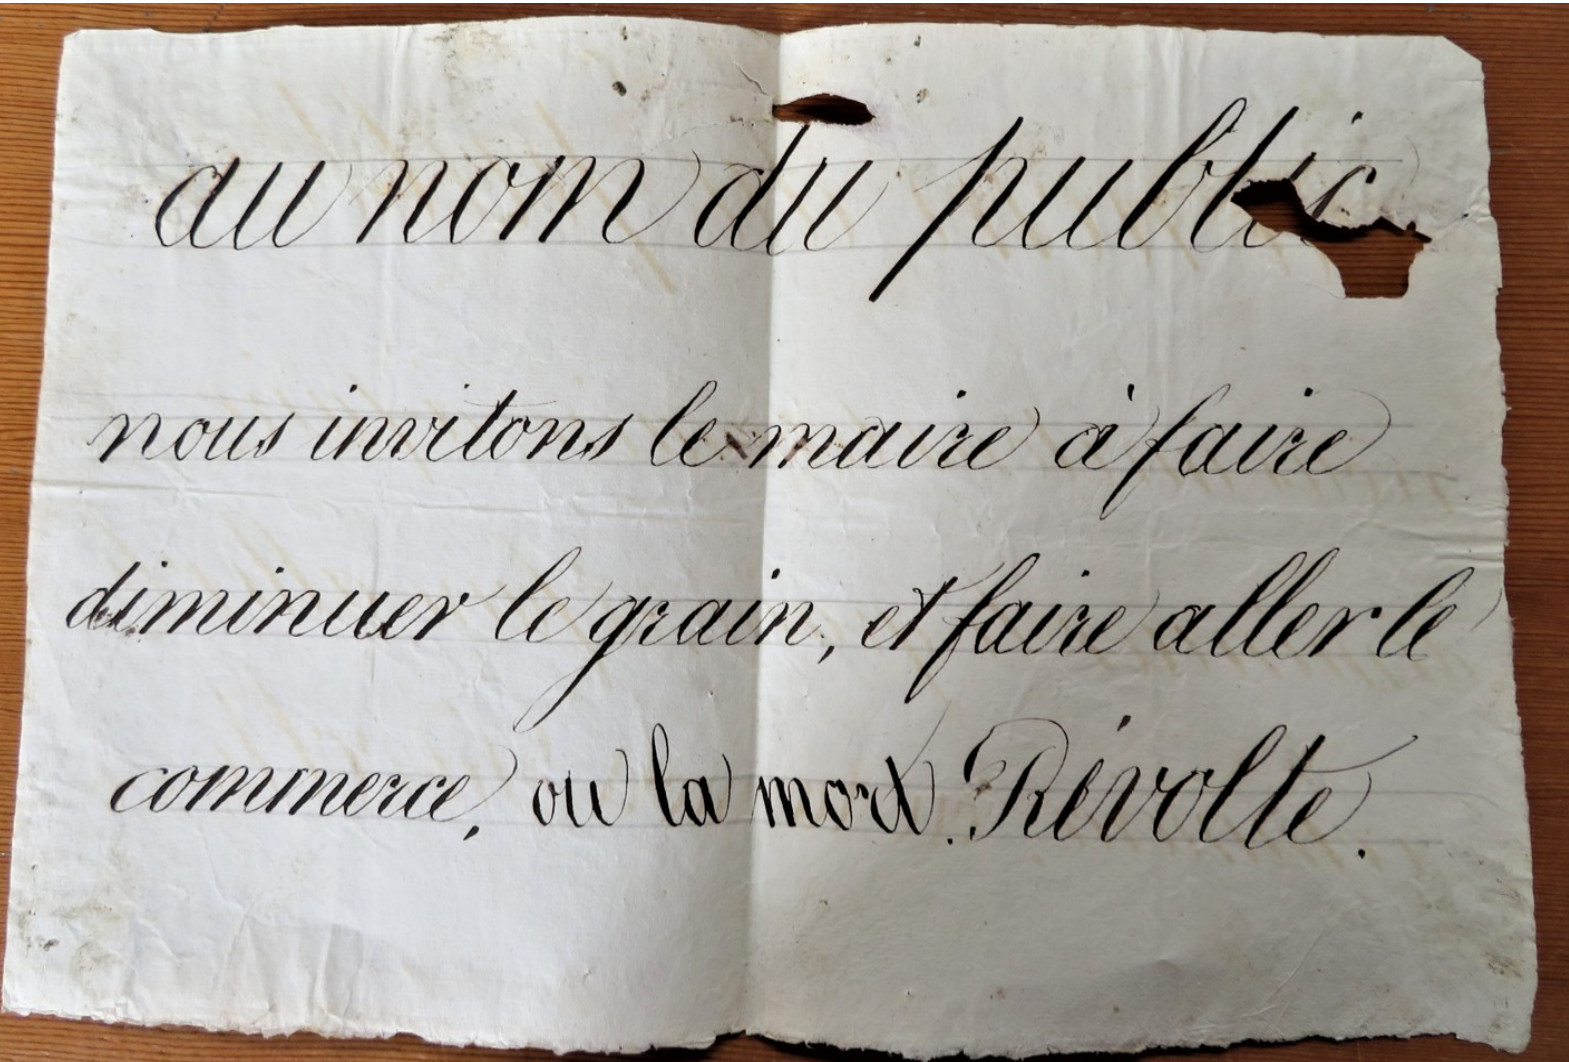 au nom du public
nous invitons le maire à faire
diminuer le grain, et faire aller le
commerce, ou la mort. Révolte.